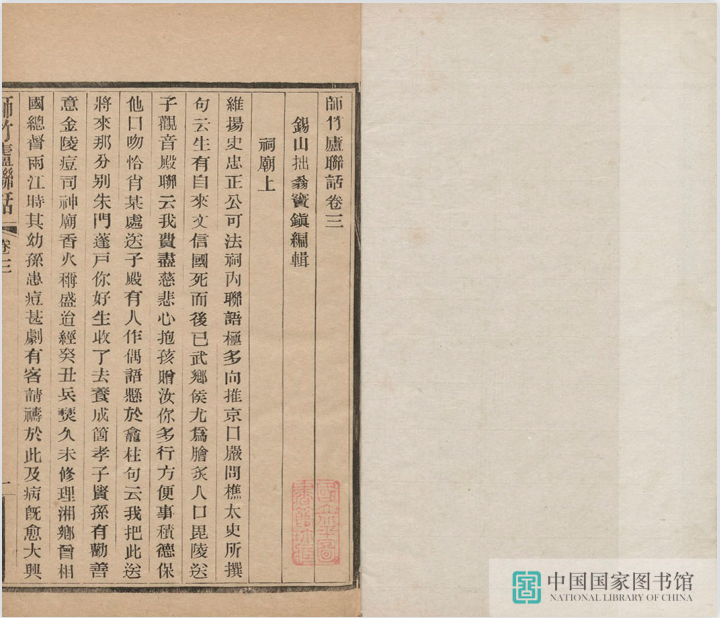 師竹廬聯話卷三
錫山拙翁竇鎮編輯
祠廟上
維揚史忠正公可法祠內聯語極多向推京口嚴問樵太史所撰
句云生有自來文信國死而後已武鄉侯尤為膾炙人口毘陵送
子觀音殿聯云我費盡慈悲心抱孩贈汝你多行方便事積德保
他口吻恰肖某處送子殿有人作偶語懸於龕柱句云我把此送
將來那分別朱門蓬戶你好生收了去養成箇孝子賢孫有勸善
意金陵痘司神廟香火稱盛迨經癸丑兵燹久未修理湘鄉曾相
國總督兩江時其幼孫患痘甚劇有客請禱於此及病旣愈大興
師竹廬聯話
卷三
一
中国国家图书馆
NATIONAL LIBRARY OF CHINA